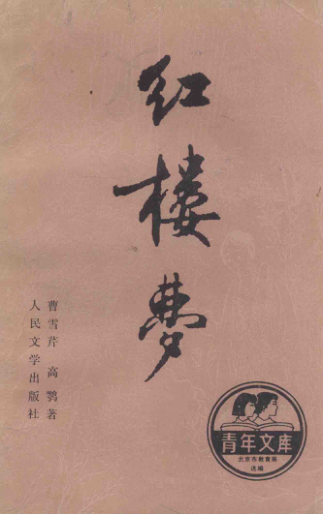 红楼梦
曹雪芹 高鹗著
人民文学出版社
青年文库
北京市教育局
选编